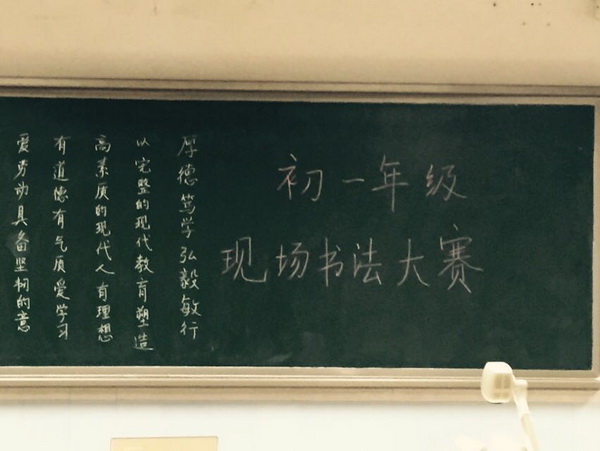 初一年级
现场书法大赛
厚德笃学弘毅敏行
以完整的现代教育塑造
高素质的现代人有理想
有道德有气质爱学习
爱劳动具备坚韧的意